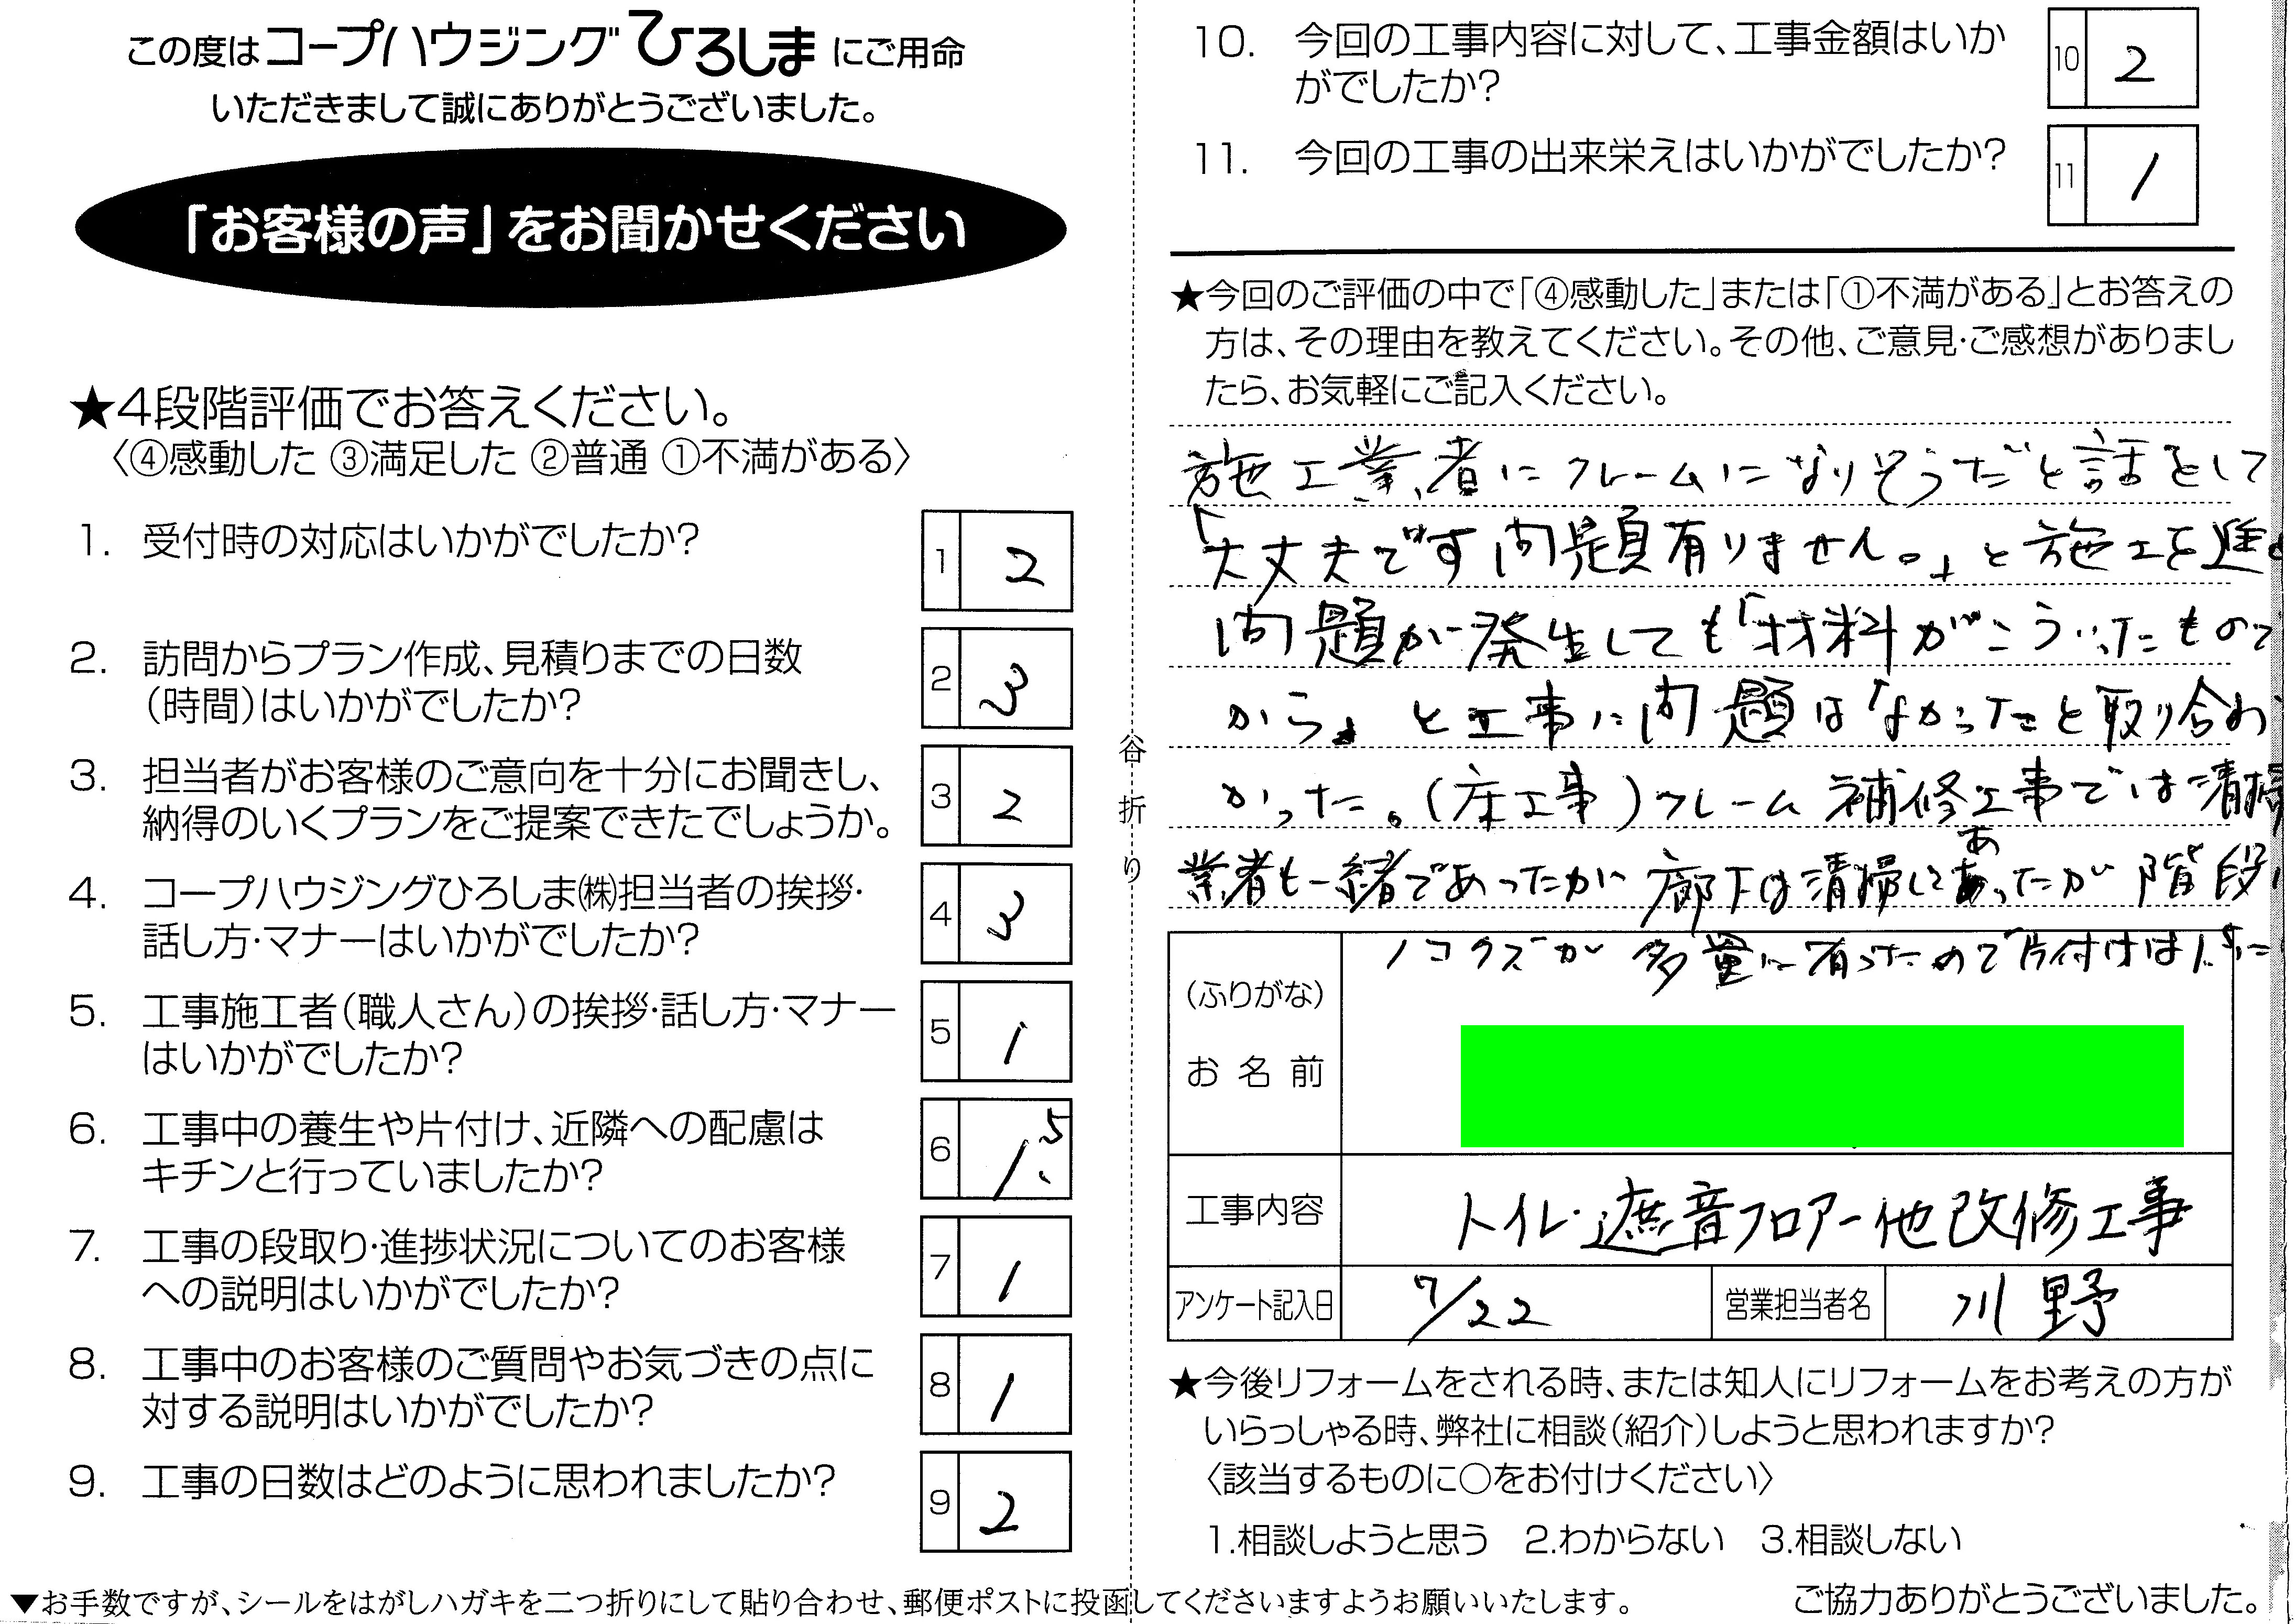 この度はコープハウジングひろしまにご用命
いただきまして誠にありがとうございました。
「お客様の声」をお聞かせください
★4段階評価でお答えください。
〈④感動した ③満足した ②普通 ①不満がある〉
1. 受付時の対応はいかがでしたか?
1 2
2. 訪問からプラン作成、見積りまでの日数
(時間)はいかがでしたか?
2 3
3. 担当者がお客様のご意向を十分にお聞きし、
納得のいくプランをご提案できたでしょうか。
3 2
4. コープハウジングひろしま㈱担当者の挨拶・
話し方・マナーはいかがでしたか?
4 3
5. 工事施工者(職人さん)の挨拶・話し方・マナー
はいかがでしたか?
5 1
6. 工事中の養生や片付け、近隣への配慮は
キチンと行っていましたか?
6 1.5
7. 工事の段取り・進捗状況についてのお客様
への説明はいかがでしたか?
7 1
8. 工事中のお客様のご質問やお気づきの点に
対する説明はいかがでしたか?
8 1
9. 工事の日数はどのように思われましたか?
9 2
谷折り
10. 今回の工事内容に対して、工事金額はいか
がでしたか?
10 2
11. 今回の工事の出来栄えはいかがでしたか?
11 1
★今回のご評価の中で「④感動した」または「①不満がある」とお答えの
方は、その理由を教えてください。その他、ご意見・ご感想がありまし
たら、お気軽にご記入ください。
施工業者にクレームになりそうだと話をして
「大丈夫です問題有りません。」と施工を進
問題が発生しても「材料がこういったもので
から」と工事に問題はなかったと取り合わ
かった。(床工事)クレーム補修工事では清掃
業者も一緒であったが廊下は清掃してあったが階段
ノコクズが多量に有ったので片付けは
(ふりがな)
お名前
工事内容 トイレ・遮音フロアー他改修工事
アンケート記入日 7/22 営業担当者名 川野
★今後リフォームをされる時、または知人にリフォームをお考えの方が
いらっしゃる時、弊社に相談(紹介)しようと思われますか?
〈該当するものに○をお付けください〉
1.相談しようと思う 2.わからない 3.相談しない
▼お手数ですが、シールをはがしハガキを二つ折りにして貼り合わせ、郵便ポストに投函してくださいますようお願いいたします。
ご協力ありがとうございました。